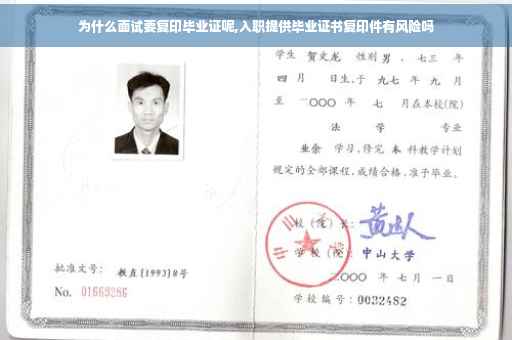 为什么面试要复印毕业证呢,入职提供毕业证书复印件有风险吗
学生 贺文龙 性别 男 、七三 年
四 月 日生,于 九七 年 九 月
至 二〇〇〇 年 七 月在本校(院)
法 学 专业
业余 学习,修完 本 科教学计划
规定的全部课程,成绩合格,准予毕业。
校(院)长:
学 校(院): 中山大学
二〇〇〇 年 七 月 一 日
学校编号: 0032482
批准文号: 教直[1993]8号
No. 01669286